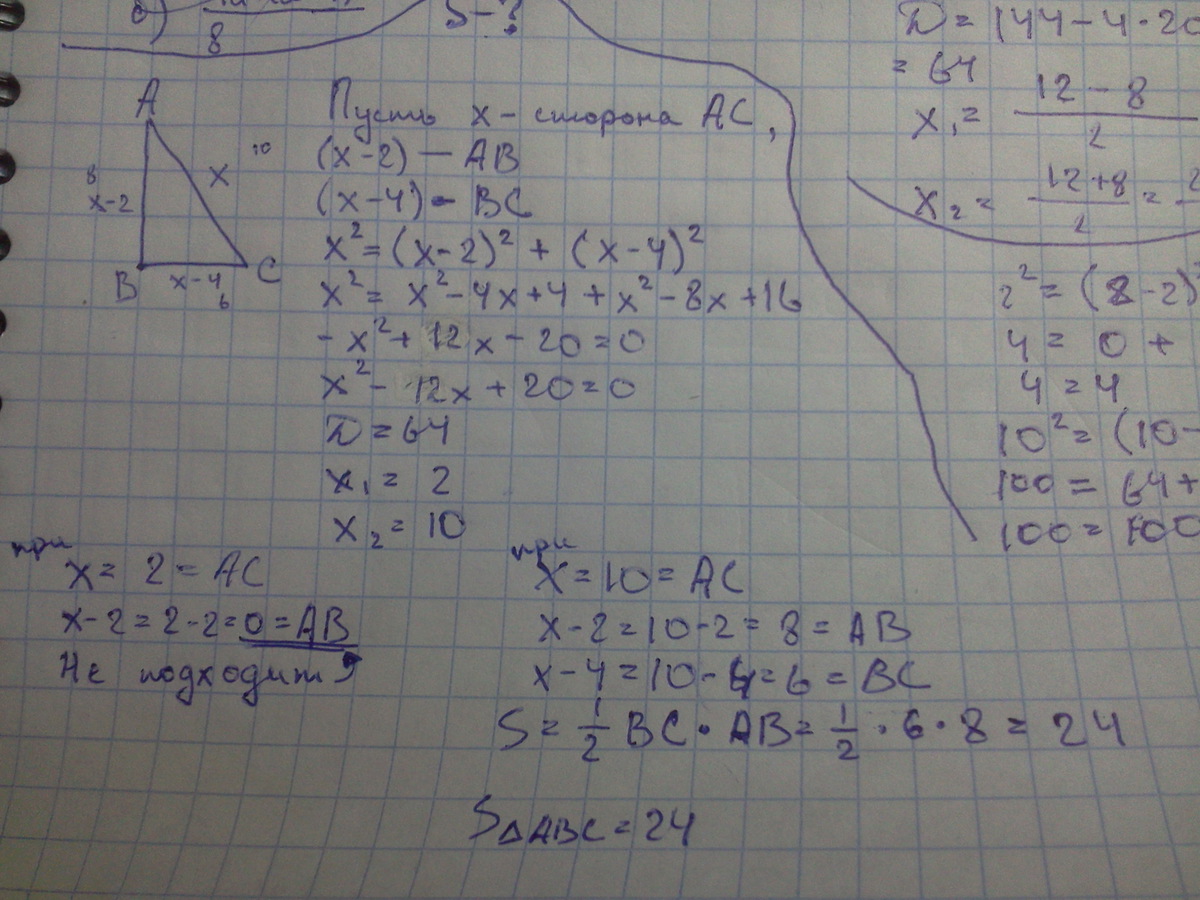 8
S-?
A
8
x-2
x
10
B
x-4
6
C
Пусть x - сторона AC,
(x-2) — AB
(x-4) - BC
x² = (x-2)² + (x-4)²
x² = x² - 4x + 4 + x² - 8x + 16
- x² + 12x - 20 = 0
x² - 12x + 20 = 0
D = 64
x₁ = 2
x₂ = 10
D = 144 - 4 · 20
= 64
x₁ = 12 - 8 / 2
x₂ = 12 + 8 / 2 =
2² = (2-2)
4 = 0 +
4 = 4
10² = (10-
100 = 64 +
100 = 100
при
x = 2 = AC
x-2 = 2-2 = 0 = AB
Не подходит
при
x = 10 = AC
x-2 = 10-2 = 8 = AB
x-4 = 10-4 = 6 = BC
S = 1/2 BC · AB = 1/2 · 6 · 8 = 24
S△ABC = 24